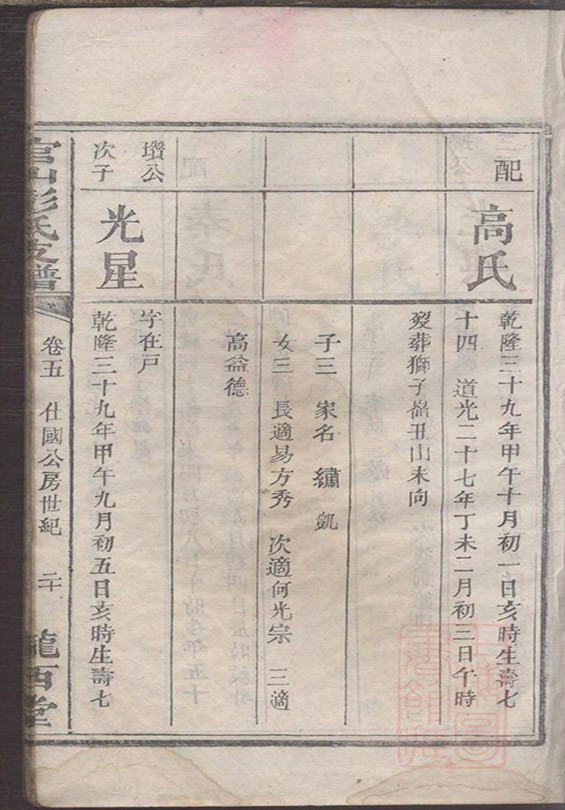 配
高氏
乾隆三十九年甲午十月初一日亥時生壽七
十四 道光二十七年丁未二月初三日午時
歿葬獅子嵓丑山未向
子三 家名 繡 凱
女三 長適易方秀 次適何光宗 三適
高益德
瓚公
次子
光星
字在戶
乾隆三十九年甲午九月初五日亥時生壽七
官山彭氏支譜
卷五 仕國公房世紀 二十
隴西堂